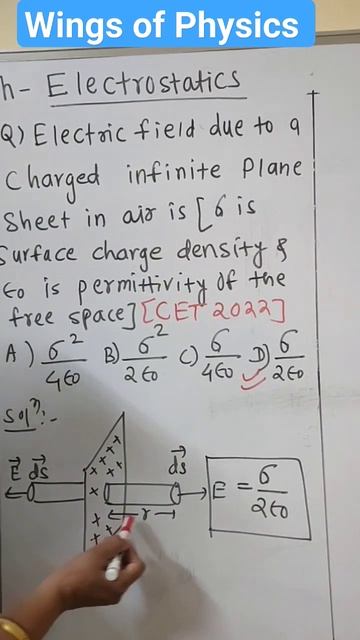 Wings of Physics
h- Electrostatics
Q) Electric field due to a
Charged infinite Plane
Sheet in air is [σ is
Surface charge density &
ε0 is permittivity of the
free space] [CET 2022]
A) σ²/4ε0 B) σ²/2ε0 C) σ/4ε0 D) σ/2ε0
Solⁿ:-
E ds ds
E = σ/2ε0
r